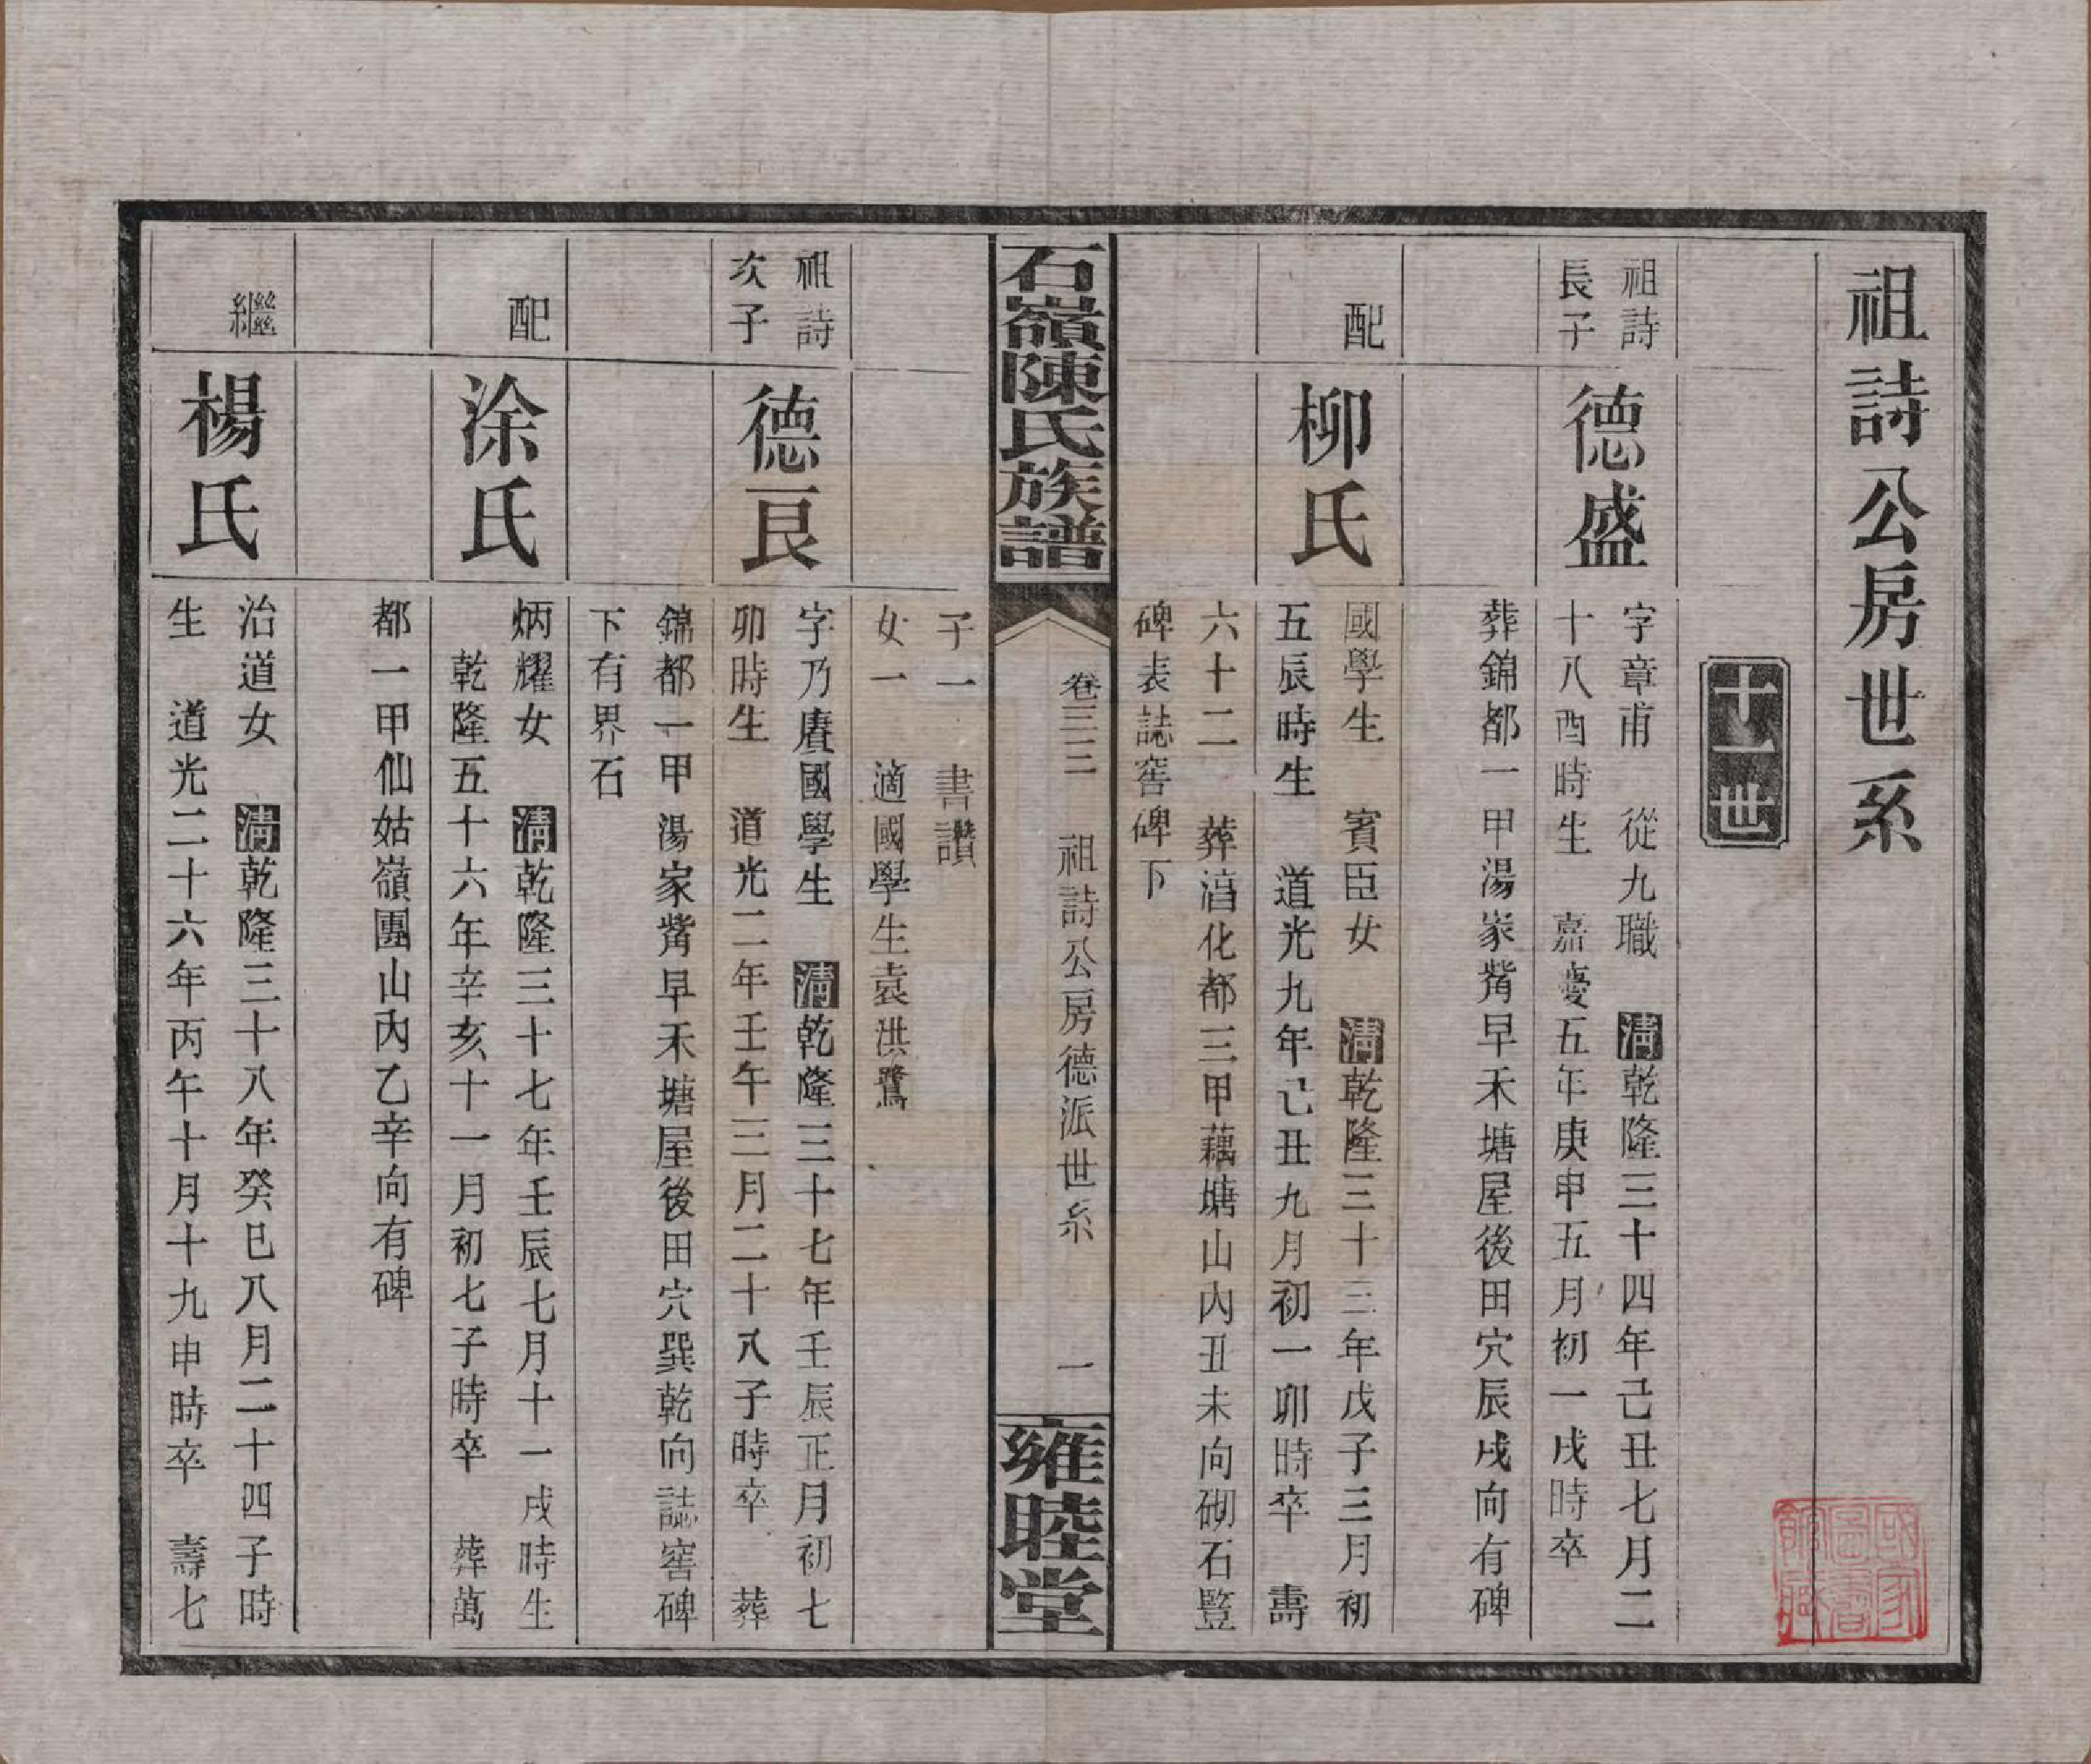 祖詩公房世系
十一世
祖詩
長子
德盛
字章甫　從九職　清乾隆三十四年己丑七月二
十八酉時生　嘉慶五年庚申五月初一戌時卒
葬錦都一甲湯家觜早禾塘屋後田穴辰戌向有碑
配
柳氏
國學生　賓臣女　清乾隆三十三年戊子三月初
五辰時生　道光九年己丑九月初一卯時卒　壽
六十二　葬湻化都三甲藕塘山內丑未向砌石豎
碑表誌窖碑下
石嶺陳氏族譜
卷三三　祖詩公房德派世系　一
雍睦堂
子一　書讚
女一　適國學生袁洪鷺
祖詩
次子
德良
字乃賡國學生　清乾隆三十七年壬辰正月初七
卯時生　道光二年壬午三月二十八子時卒　葬
錦都一甲湯家觜早禾塘屋後田穴巽乾向誌窖碑
下有界石
配
涂氏
炳耀女　清乾隆三十七年壬辰七月十一戌時生
乾隆五十六年辛亥十一月初七子時卒　葬萬
都一甲仙姑嶺團山內乙辛向有碑
繼
楊氏
治道女　清乾隆三十八年癸巳八月二十四子時
生　道光二十六年丙午十月十九申時卒　壽七
國家
圖書
館藏